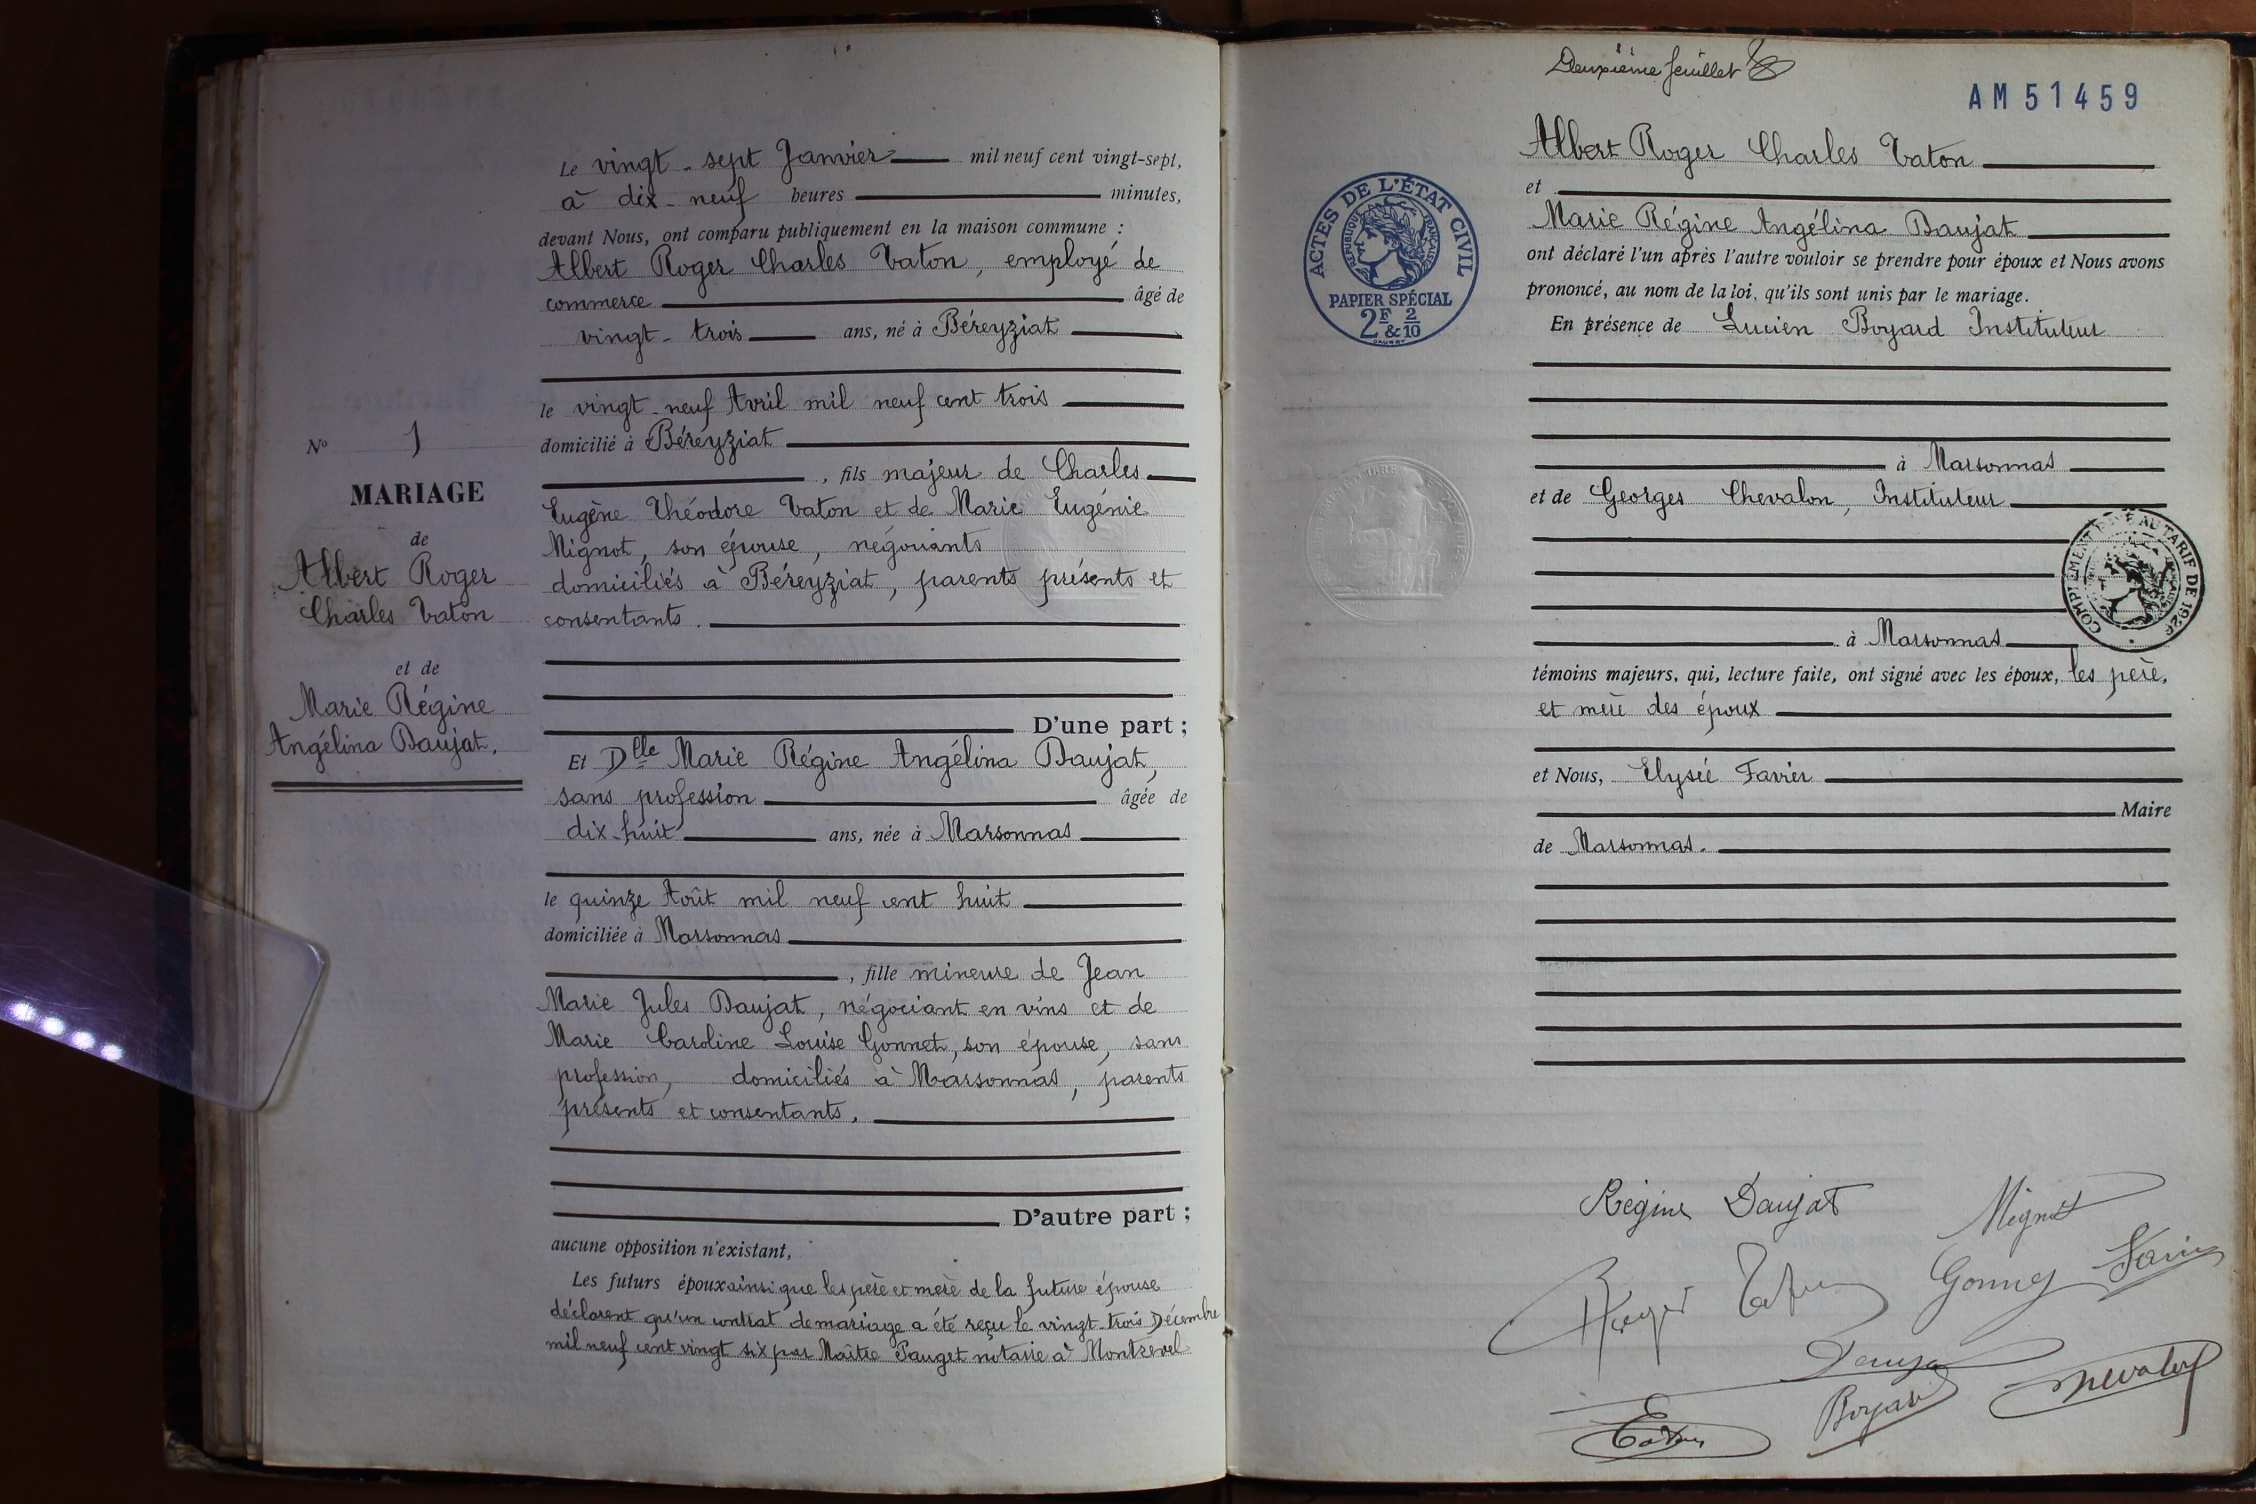 N° 1
MARIAGE
de
Albert Roger
Charles Vaton
et de
Marie Régine
Angélina Daujat.
Le vingt-sept Janvier mil neuf cent vingt-sept,
à dix-neuf heures minutes,
devant Nous, ont comparu publiquement en la maison commune :
Albert Roger Charles Vaton, employé de
commerce âgé de
vingt-trois ans, né à Béreyziat
le vingt-neuf Avril mil neuf cent trois
domicilié à Béreyziat
, fils majeur de Charles
Eugène Théodore Vaton et de Marie Eugénie
Mignot, son épouse, négociants
domiciliés à Béreyziat, parents présents et
consentants.
D'une part ;
Et Dlle Marie Régine Angélina Daujat,
sans profession âgée de
dix-huit ans, née à Marsonnas
le quinze Août mil neuf cent huit
domiciliée à Marsonnas
, fille mineure de Jean
Marie Jules Daujat, négociant en vins et de
Marie Caroline Louise Gonnet, son épouse, sans
profession, domiciliés à Marsonnas, parents
présents et consentants.
D'autre part ;
aucune opposition n'existant,
Les futurs époux ainsi que les père et mère de la future épouse
déclarent qu'un contrat de mariage a été reçu le vingt-trois Décembre
mil neuf cent vingt six par Maître Pauget notaire à Montrevel
Deuxième feuillet
AM 51459
ACTES DE L'ÉTAT CIVIL
RÉPUBLIQUE FRANÇAISE
PAPIER SPÉCIAL
2F & 2/10
Albert Roger Charles Vaton
et
Marie Régine Angélina Daujat
ont déclaré l'un après l'autre vouloir se prendre pour époux et Nous avons
prononcé, au nom de la loi, qu'ils sont unis par le mariage.
En présence de Lucien Boyard Instituteur
à Marsonnas
et de Georges Chevalon, Instituteur
COMPLEMENT AU TARIF DE 1926
à Marsonnas
témoins majeurs, qui, lecture faite, ont signé avec les époux, les père,
et mère des époux
et Nous, Elysée Favier
Maire
de Marsonnas.
Régine Daujat
Mignot
Roger Vaton
Gonnet
Favier
Daujat
Boyard
Chevalon
Vaton